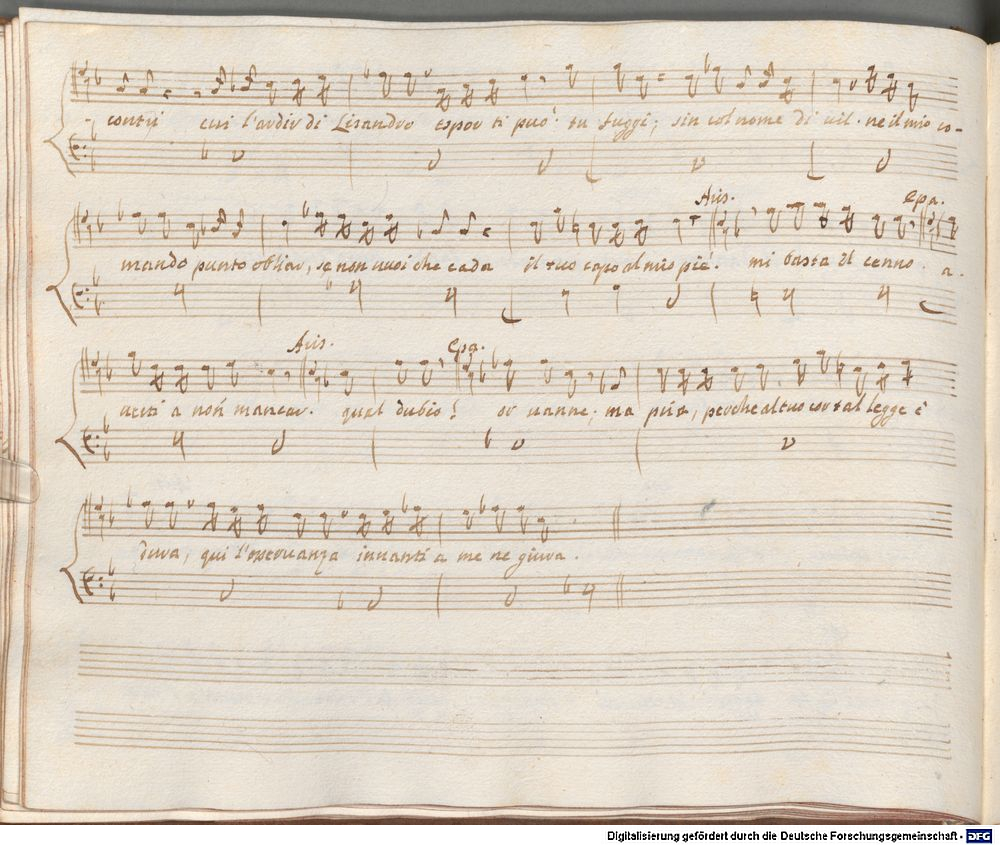 contri cui l'ardir di Lisandro espor ti può. tu fuggi; sin col nome di vil. ne il mio co-
Aris. Epa.
mando punto obliar, se non vuoi che cada il tuo capo al mio piè. mi basta il cenno. a-
Aris. Epa.
verti a non mancar. qual dubio! or vanne; ma pria, perche al tuo cor tal legge è
dura, qui l'osservanza innanti a me ne giura.
Digitalisierung gefördert durch die Deutsche Forschungsgemeinschaft - DFG